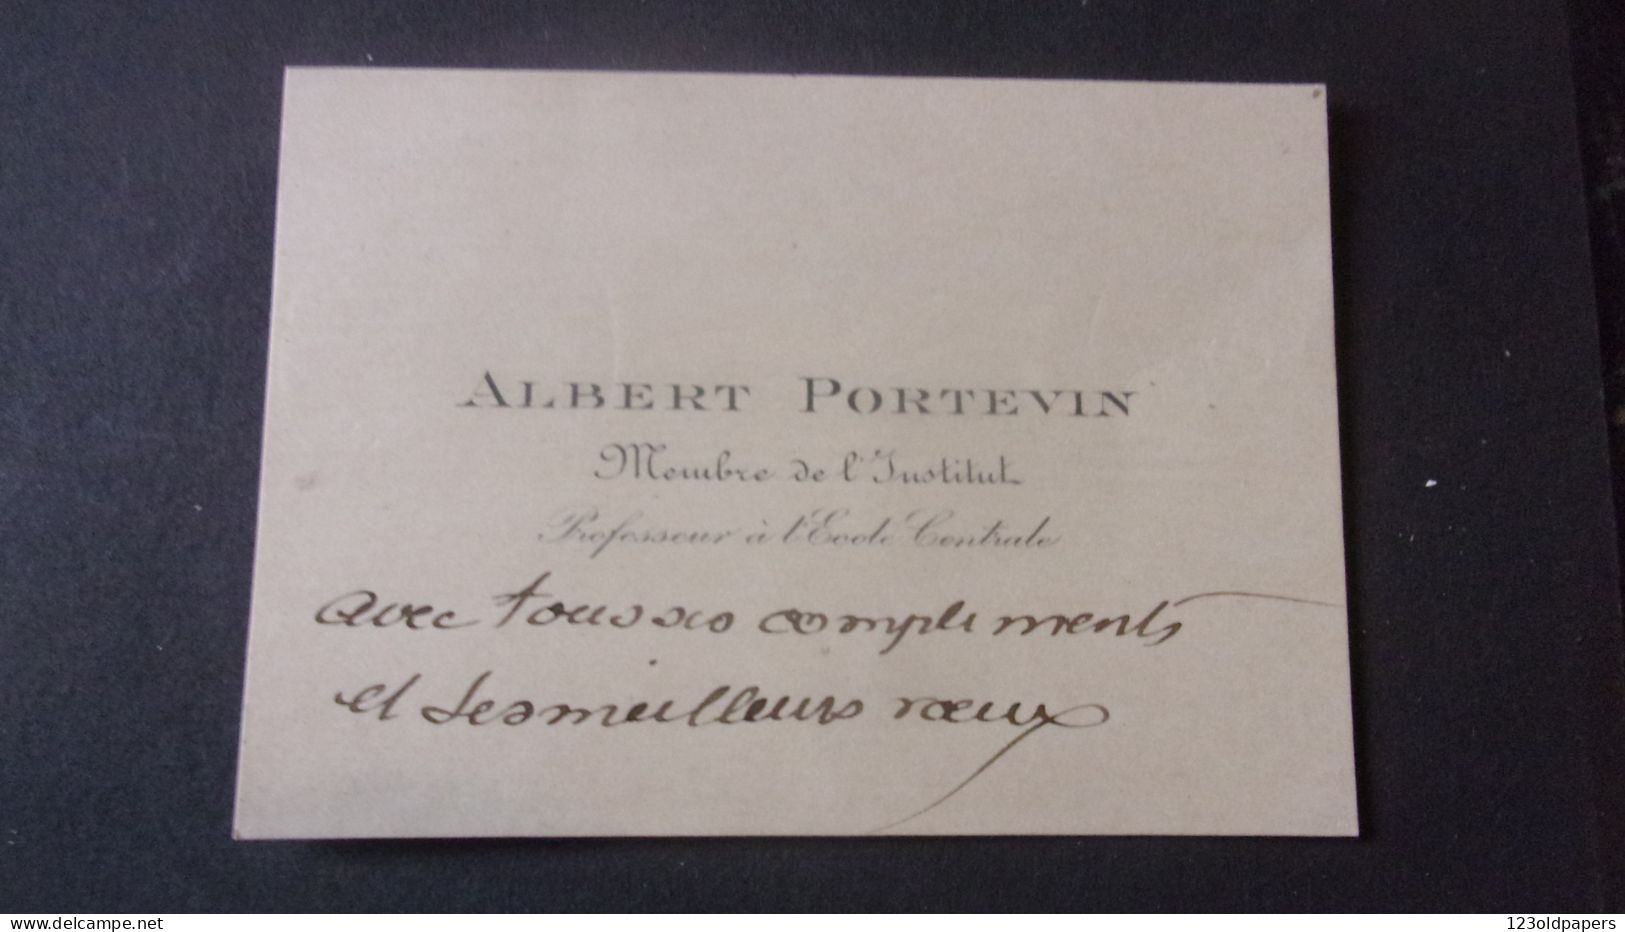 ALBERT PORTEVIN
Membre de l'Institut
Professeur à l'Ecole Centrale
avec tous ses compliments
et ses meilleurs vœux
delcampe.net
123oldpapers